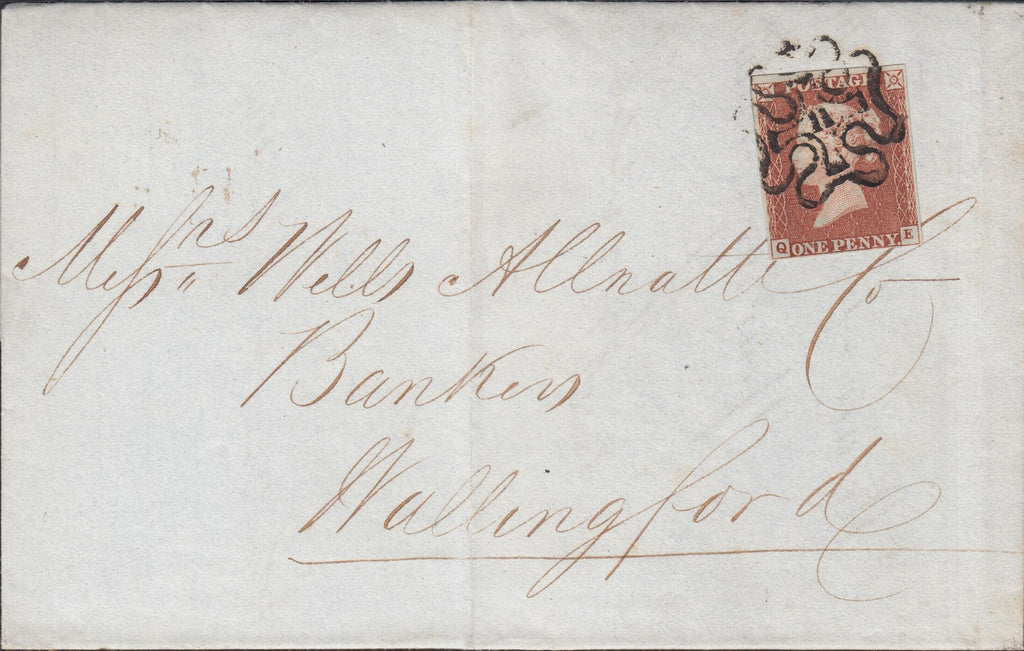 POSTAGE
Q ONE PENNY. E
Messrs Wells Allnatt Co
Bankers
Wallingford